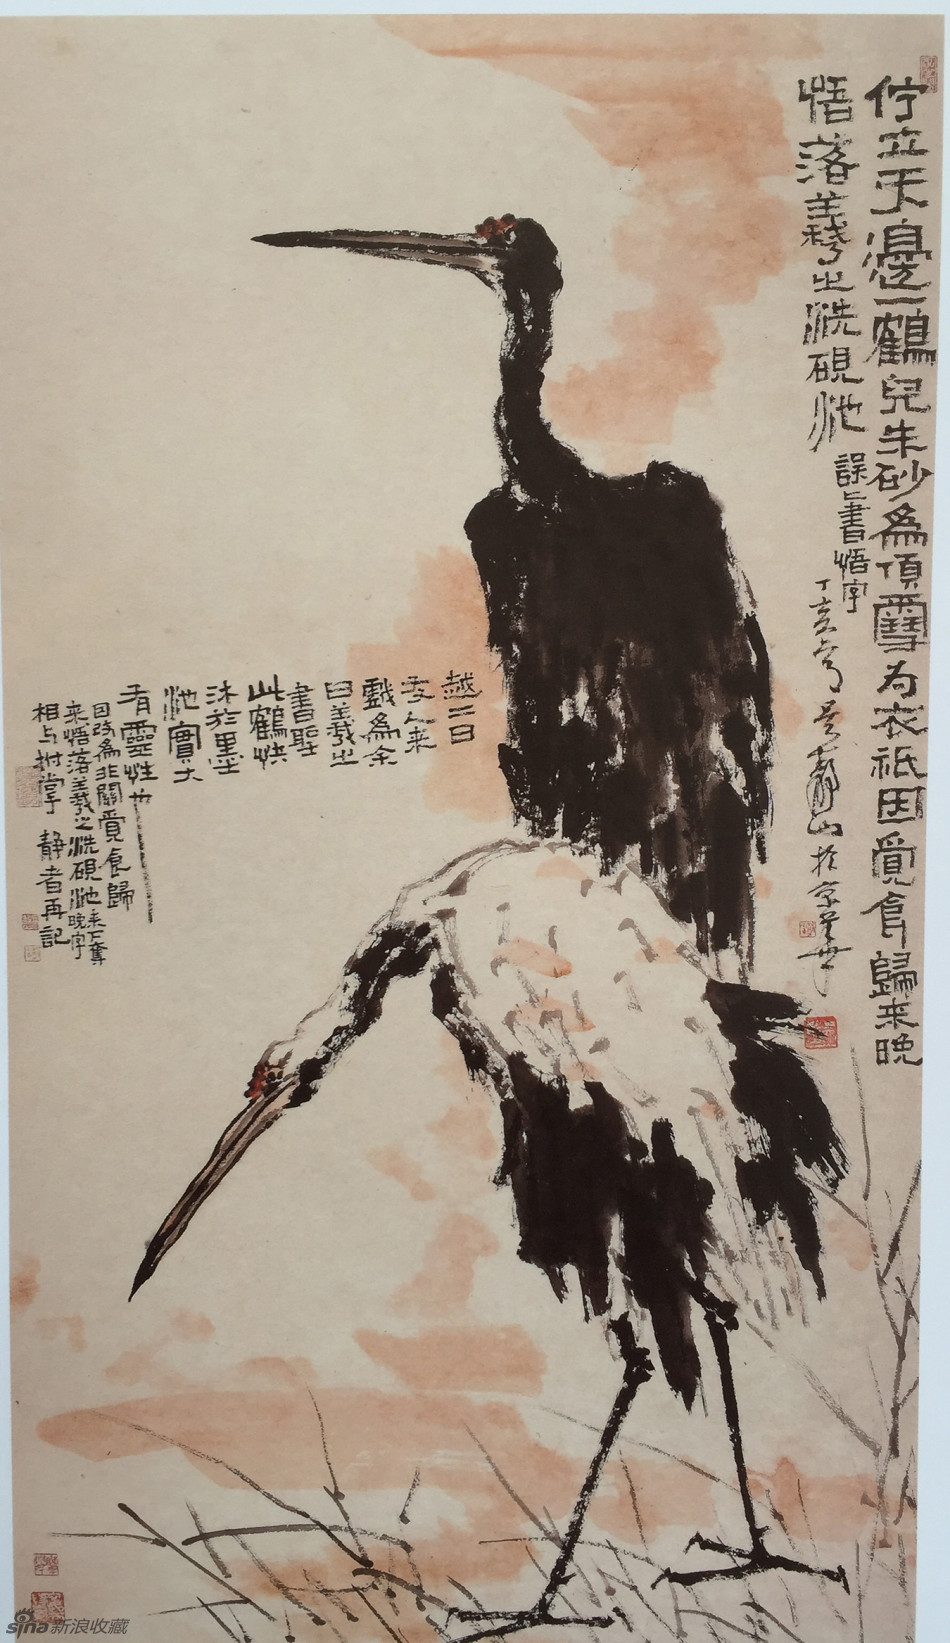 佇立天邊一鶴兒朱砂為頂雪为衣祇因覓食歸来晚
悟落羲之洗硯池
誤上書悟字
丁亥
靜山於京華
越二日
友人来
戲為余
曰羲之
書聖
此鶴快
沐於墨
池實大
有靈性也
因改為非關覓食歸
来悟落羲之洗硯池
来下奪
晚字
相与拊掌 静者再記
sina新浪收藏